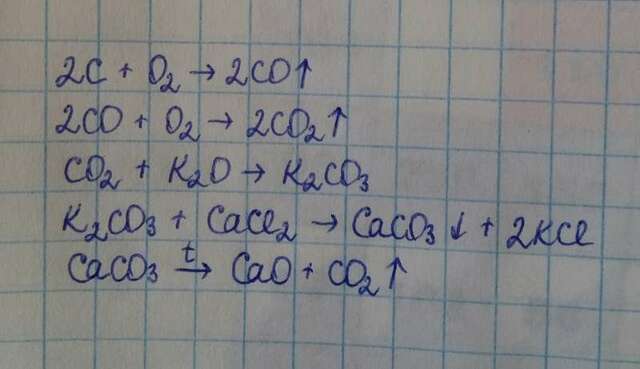 2C + O₂ → 2CO↑
2CO + O₂ → 2CO₂↑
CO₂ + K₂O → K₂CO₃
K₂CO₃ + CaCl₂ → CaCO₃↓ + 2KCl
CaCO₃ t→ CaO + CO₂↑